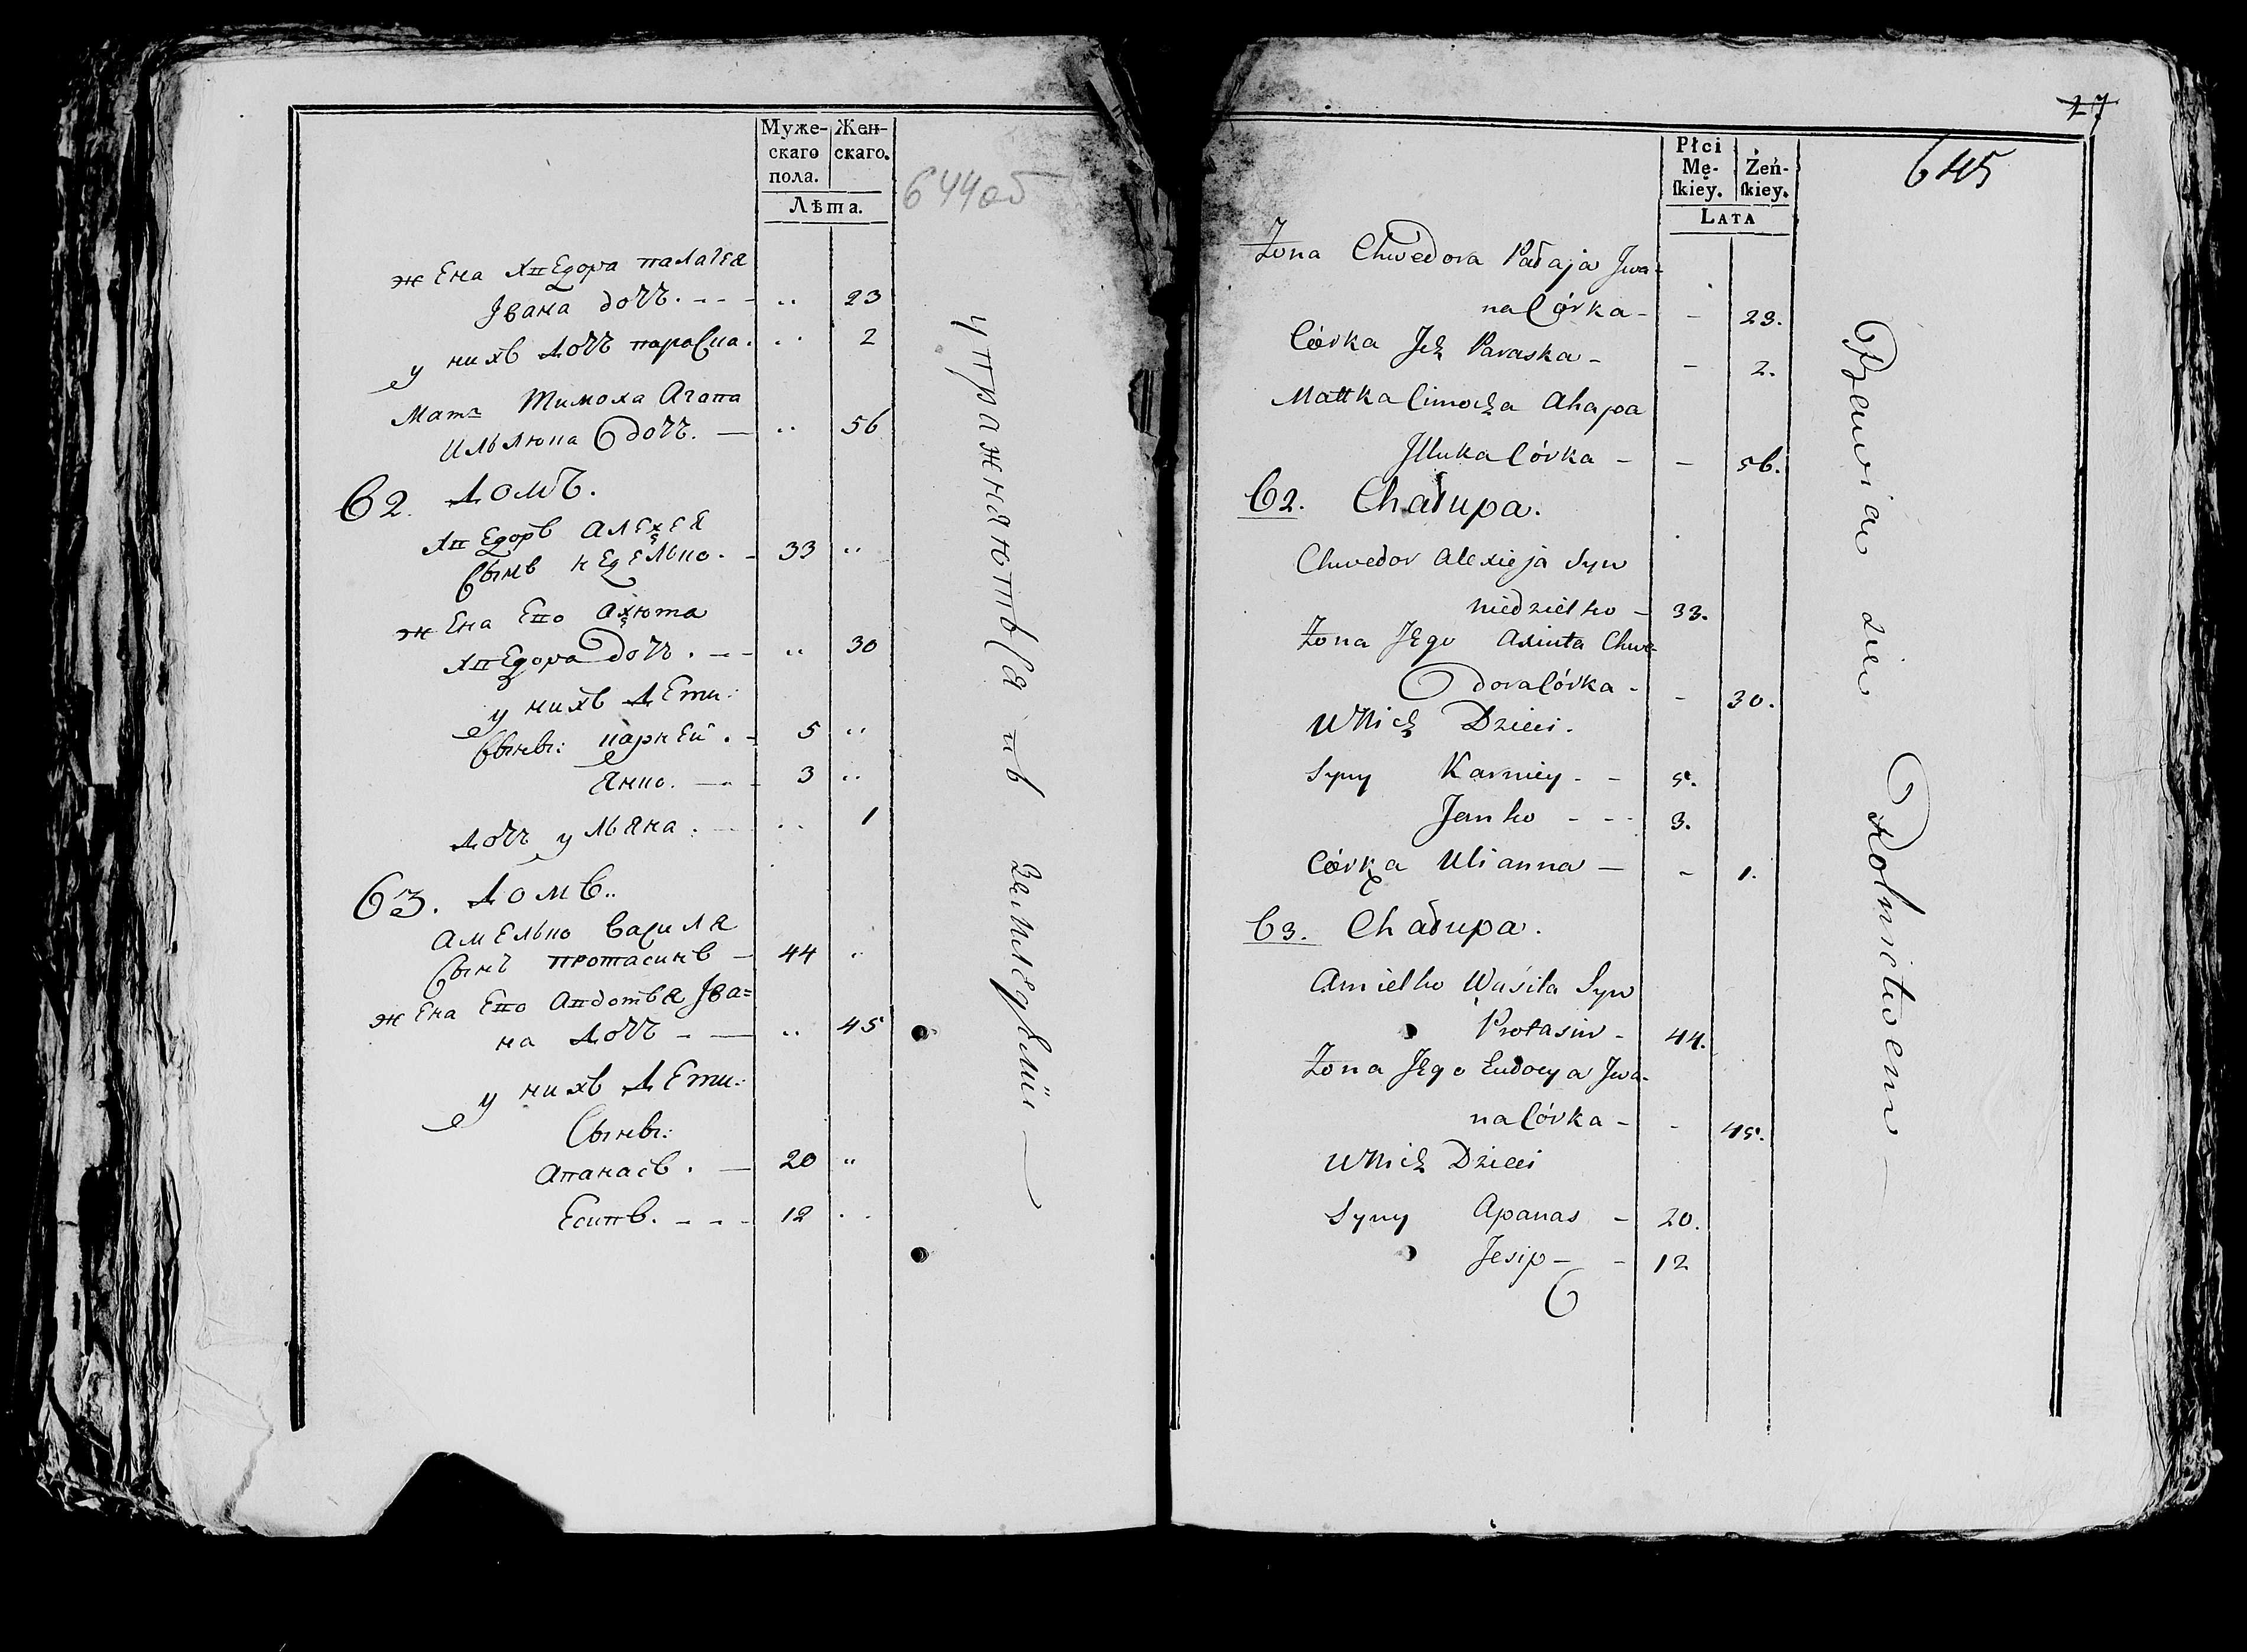 Муже-
скаго
пола.
Жен-
скаго.
Лѣта.
644об
жена хведора палагея
Jвана дочь. - - - .. 23
у нихъ дочь параска. .. 2
Мать тимоха Агапа
ильлюка дочь. — .. 56
62. Домъ.
хведоръ алеѯея
сынъ неделько. - 33 ..
жена ево аѯюта
хведора дочь. - - .. 30
у нихъ дети:
сыны: карней. - 5 ..
янко. — - 3 ..
дочь ульяна. — .. 1
63. Домъ..
амелько василя
сынъ протасинъ - 44 ..
жена ево авдотья Jва=
на дочь - — .. 45
у нихъ дети:
сыны:
апанасъ. — 20 ..
есипъ. - - - 12 ..
упражняютъся въ земледѣлїи —
27
645
Płci
Mę-
ſkiey.
Żeń-
ſkiey.
Lata
Żona Chwedora Pałaja Jwa-
na Córka - - 23.
Córka Jch Paraska - - 2.
Matka Cimocha Ahapa
Jlluka Córka - - 56.
62. Chałupa.
Chwedor Alexieja Syn
Niedzielko - 33.
Żona Jego Axiuta Chwe-
dora Córka - - 30.
U Nich Dzieci.
Syny Karniey - - 5.
Janko - - - 3.
Córka Ulianna — - 1.
63. Chałupa.
Amielko Waśila Syn
Protasin - 44.
Żona Jego Eudocya Jwa-
na Córka - - 45.
U Nich Dzieci
Syny Apanas - 20.
Jesip - - 12
Bawią się Rolnictwem —